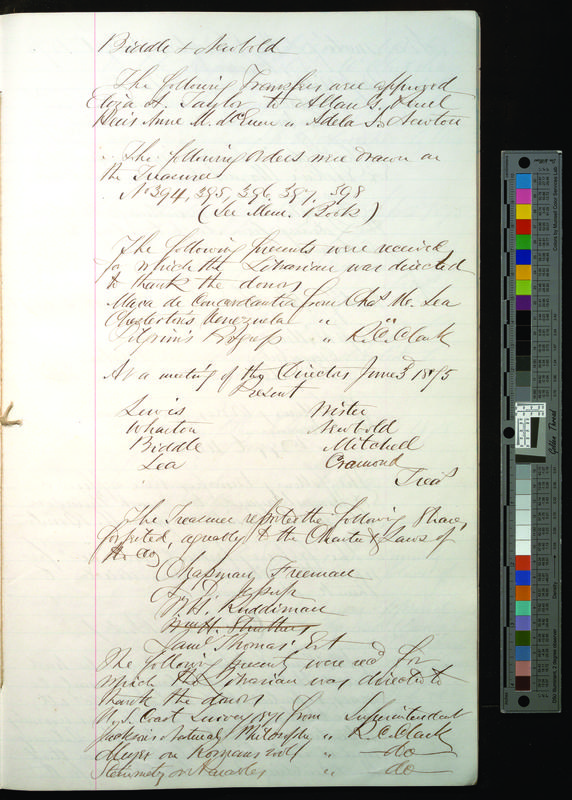 Biddle & Newbold
The following Transfers were approved
Eliza A. Taylor to Allan
Heirs Anne M. McEuen " Adela J. Newton
The following orders were drawn on
the Treasurer
No 394, 395, 396, 397, 398
(See Mem. Book)
The following presents were received
for which the Librarian was directed
to thank the donors
Mapa de from Chas H. Lea
Venezuela " "
Pilgrim's Progress " R. C. Clark
At a meeting of the Directors June 3d 1875
Present
Lewis Wister
Wharton Newbold
Biddle Mitchell
Lea Cramond
Treas
The Treasurer reported the following Shares
forfeited, agreeably to the Charter & Laws of
the Co
Chapman Freeman
W. H. Ruddiman
Wm H. Struthers
Jams Thomas' Est
The following present were recd for
which the Librarian was directed to
thank the donors
U. S. Coast Survey 1871 from Superintendent
Jackson's Natural Philosophy " R. C. Clark
Meyer on Romans vol " do
Steinmetz on " do